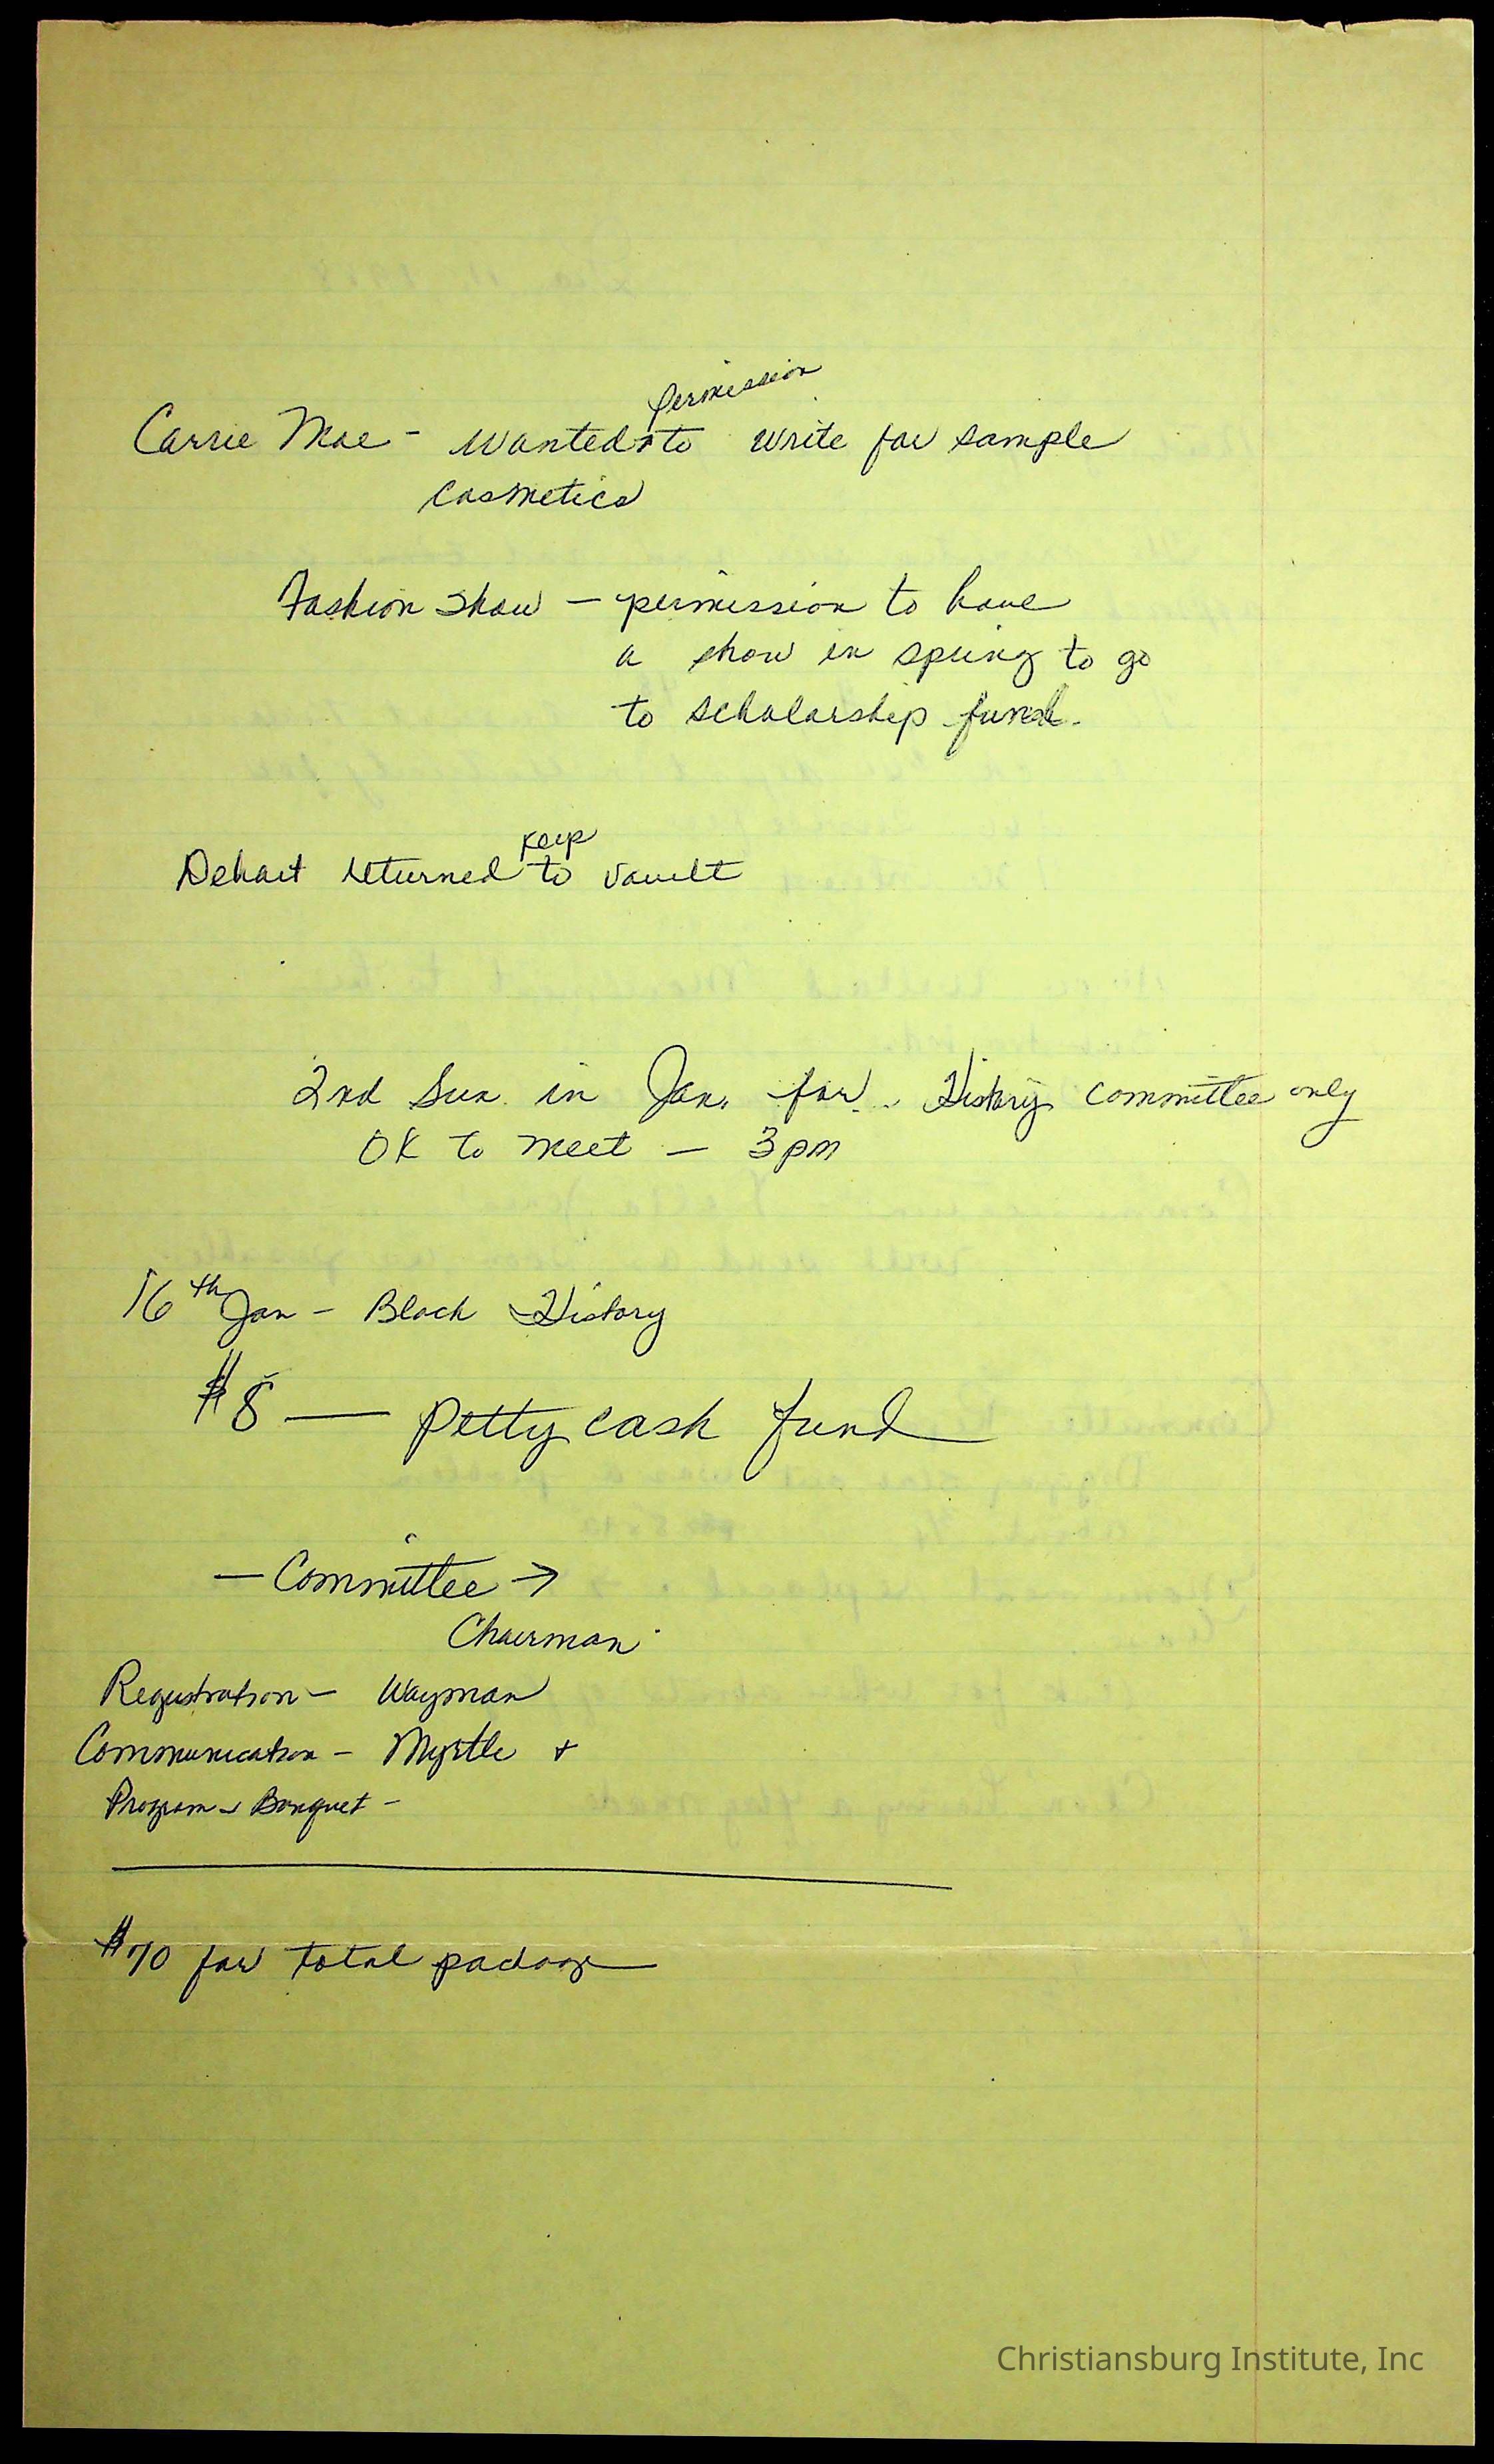 permission
Carrie Mae - wanted to write for sample
cosmetics
Fashion Show - permission to have
a show in spring to go
to scholarship fund.
keep
Dehart returned to vault
2nd Sun. in Jan. for History committee only
OK to meet - 3pm
16th Jan - Black History
$8 — petty cash fund
— Committee →
Chairman
Registration - Wayman
Communication - Myrtle +
Program & Banquet -
$70 for total package
Christiansburg Institute, Inc